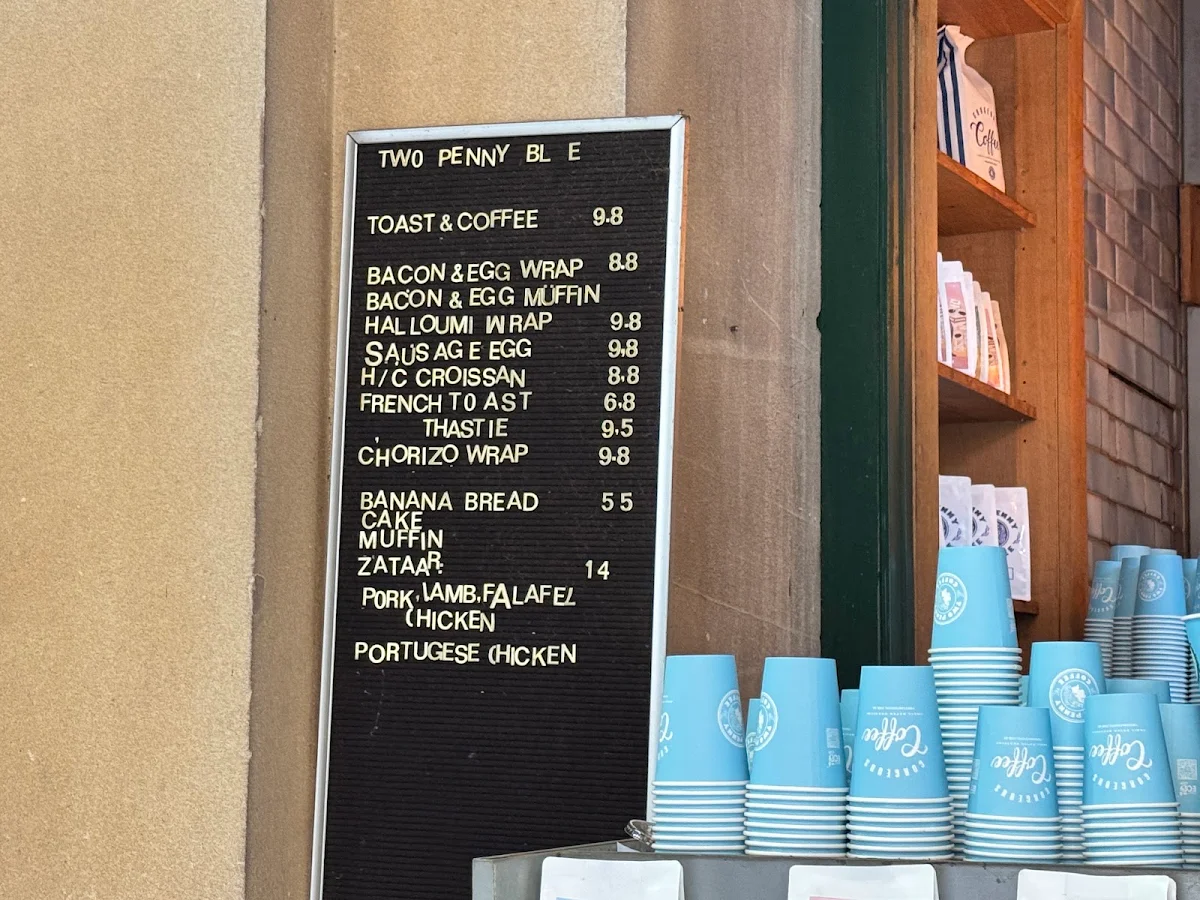 TWO PENNY BL E
TOAST & COFFEE 9.8
BACON & EGG WRAP 8.8
BACON & EGG MUFFIN
HALLOUMI WRAP 9.8
SAUSAGE EGG 9.8
H/C CROISSAN 8.8
FRENCH TOAST 6.8
, THASTIE 9.5
CHORIZO WRAP 9.8
BANANA BREAD 5 5
CAKE
MUFFIN
ZATAAR: 14
PORK, LAMB, FALAFEL
CHICKEN
PORTUGESE CHICKEN
Coffee
GORGEOUS
Coffee
GORGEOUS
Coffee
GORGEOUS